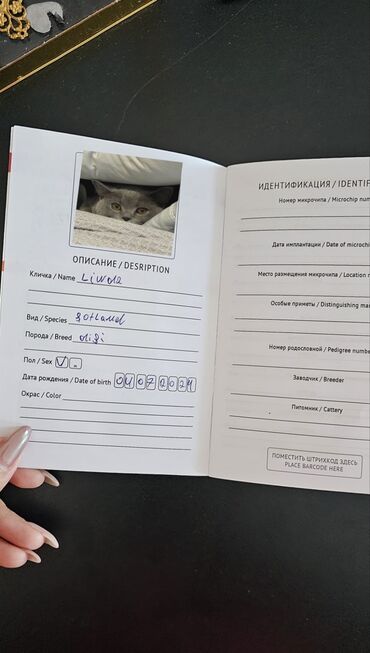 ОПИСАНИЕ / DESRIPTION
Кличка / Name Linda
Вид / Species
Порода / Breed dişi
Пол / Sex V
Дата рождения / Date of birth 04072024
Окрас / Color
ИДЕНТИФИКАЦИЯ / IDENTIF
Номер микрочипа / Microchip num
Дата имплантации / Date of microchi
Место размещения микрочипа / Location
Особые приметы / Distinguishing ma
Номер родословной / Pedigree numbe
Заводчик / Breeder
Питомник / Cattery
ПОМЕСТИТЬ ШТРИХКОД ЗДЕСЬ
PLACE BARCODE HERE